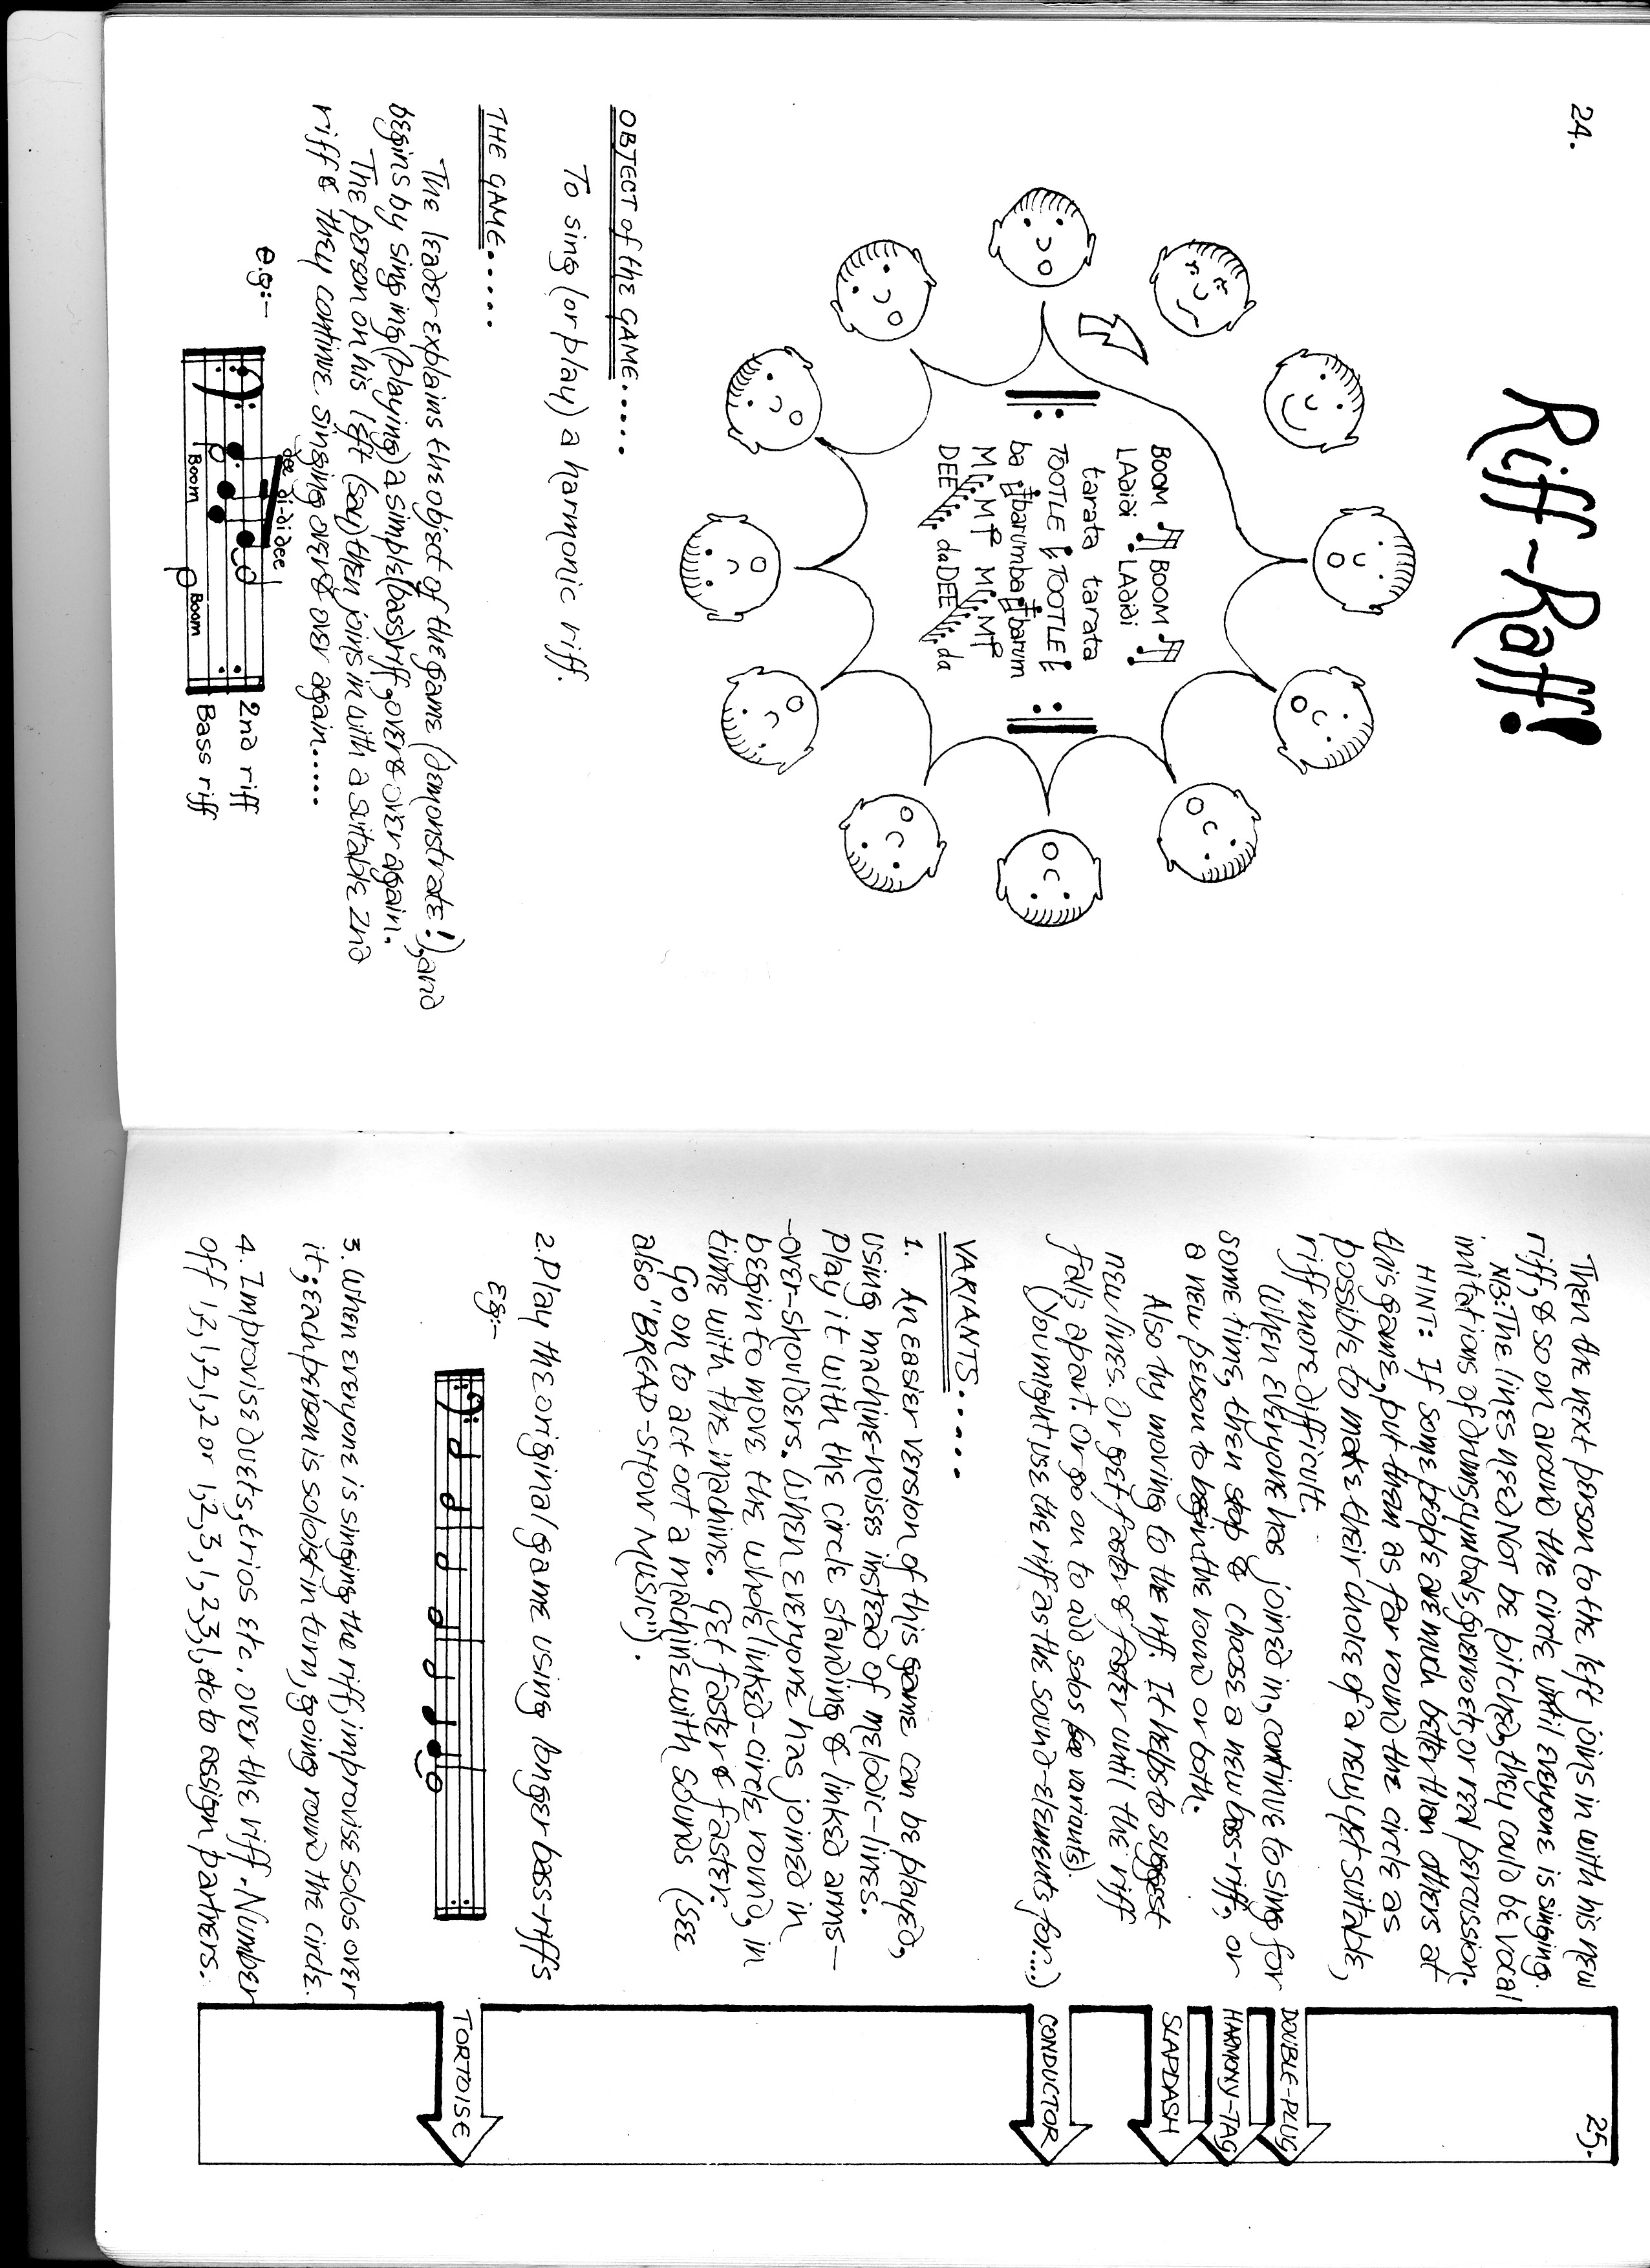 24.
Riff~Raff!
BOOM BOOM
LAdidi LAdidi
tarata tarata
TOOTLE TOOTLE
ba barumba barum
MMMP MMMP
DEE daDEE da
OBJECT of the GAME.....
To sing (or play) a harmonic riff.
THE GAME.....
The leader explains the object of the game (demonstrate!), and
begins by singing (playing) a simple (bass) riff, over & over again.
The person on his left (say) then joins in with a suitable 2nd
riff & they continue singing over & over again.....
e.g:—
dee di-di dee
Boom Boom
2nd riff
Bass riff
Then the next person to the left joins in with his new
riff, & so on around the circle until everyone is singing.
NB: The lines need Not be pitched, they could be vocal
imitations of drums, cymbals, guenoet, or real percussion.
HINT: If some people are much better than others at
this game, put them as far round the circle as
possible to make their choice of a new, yet suitable,
riff more difficult.
When everyone has joined in, continue to sing for
some time, then stop & choose a new bass-riff, or
a new person to begin the round or both.
Also try moving to the riff. It helps to suggest
new lines. Or get faster & faster until the riff
falls apart. Or go on to add solos (see variants).
(You might use the riff as the sound-elements for...)
VARIANTS.....
1. An easier version of this game can be played,
using machine-noises instead of melodic-lines.
Play it with the circle standing & linked arms—
-over-shoulders. When everyone has joined in
begin to move the whole linked-circle round, in
time with the machine. Get faster & faster.
Go on to act out a machine with sounds (see
also "BREAD-SHOW MUSIC").
2. Play the original game using longer bass-riffs
Eg:-
3. When everyone is singing the riff, improvise solos over
it; each person is soloist in turn, going round the circle.
4. Improvise duets, trios etc. over the riff. Number
off 1,2,1,2,1,2 or 1,2,3,1,2,3,1, etc to assign partners.
25.
DOUBLE-PLUG
HARMONY-TAG
SLAPDASH
CONDUCTOR
TORTOISE